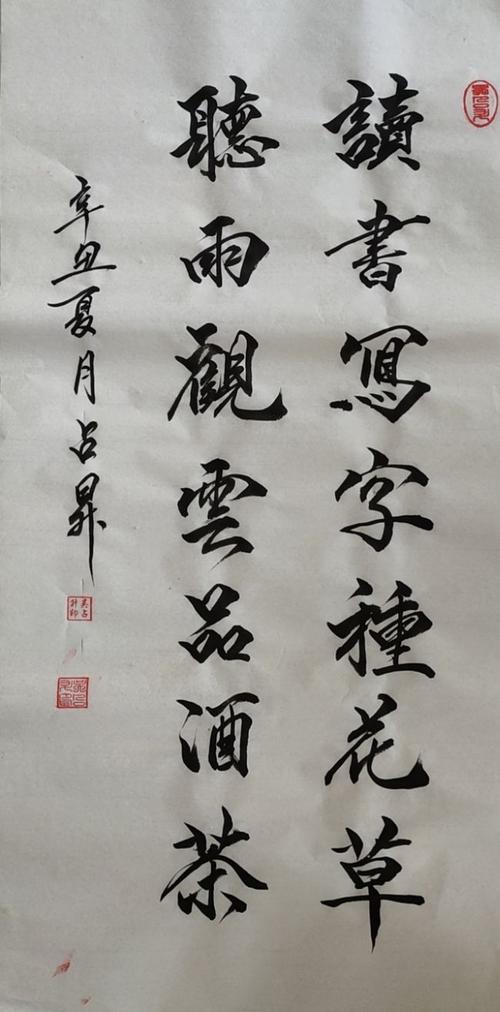 讀書寫字種花草
聽雨觀雲品酒茶
辛丑夏月占昇